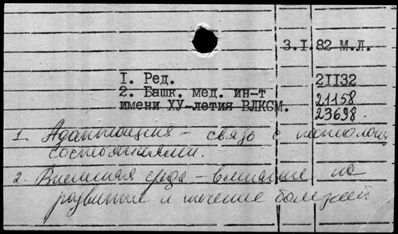 3.I.82 М.Л.
I. Ред. 21132
2. Башк. мед. ин-т 21158
имени ХУ-летия ВЛКСМ. 23698.
1. Адаптация – связь с патолог.
состояниями.
2. Внешняя среда – влияние на
развитие и течение болезней